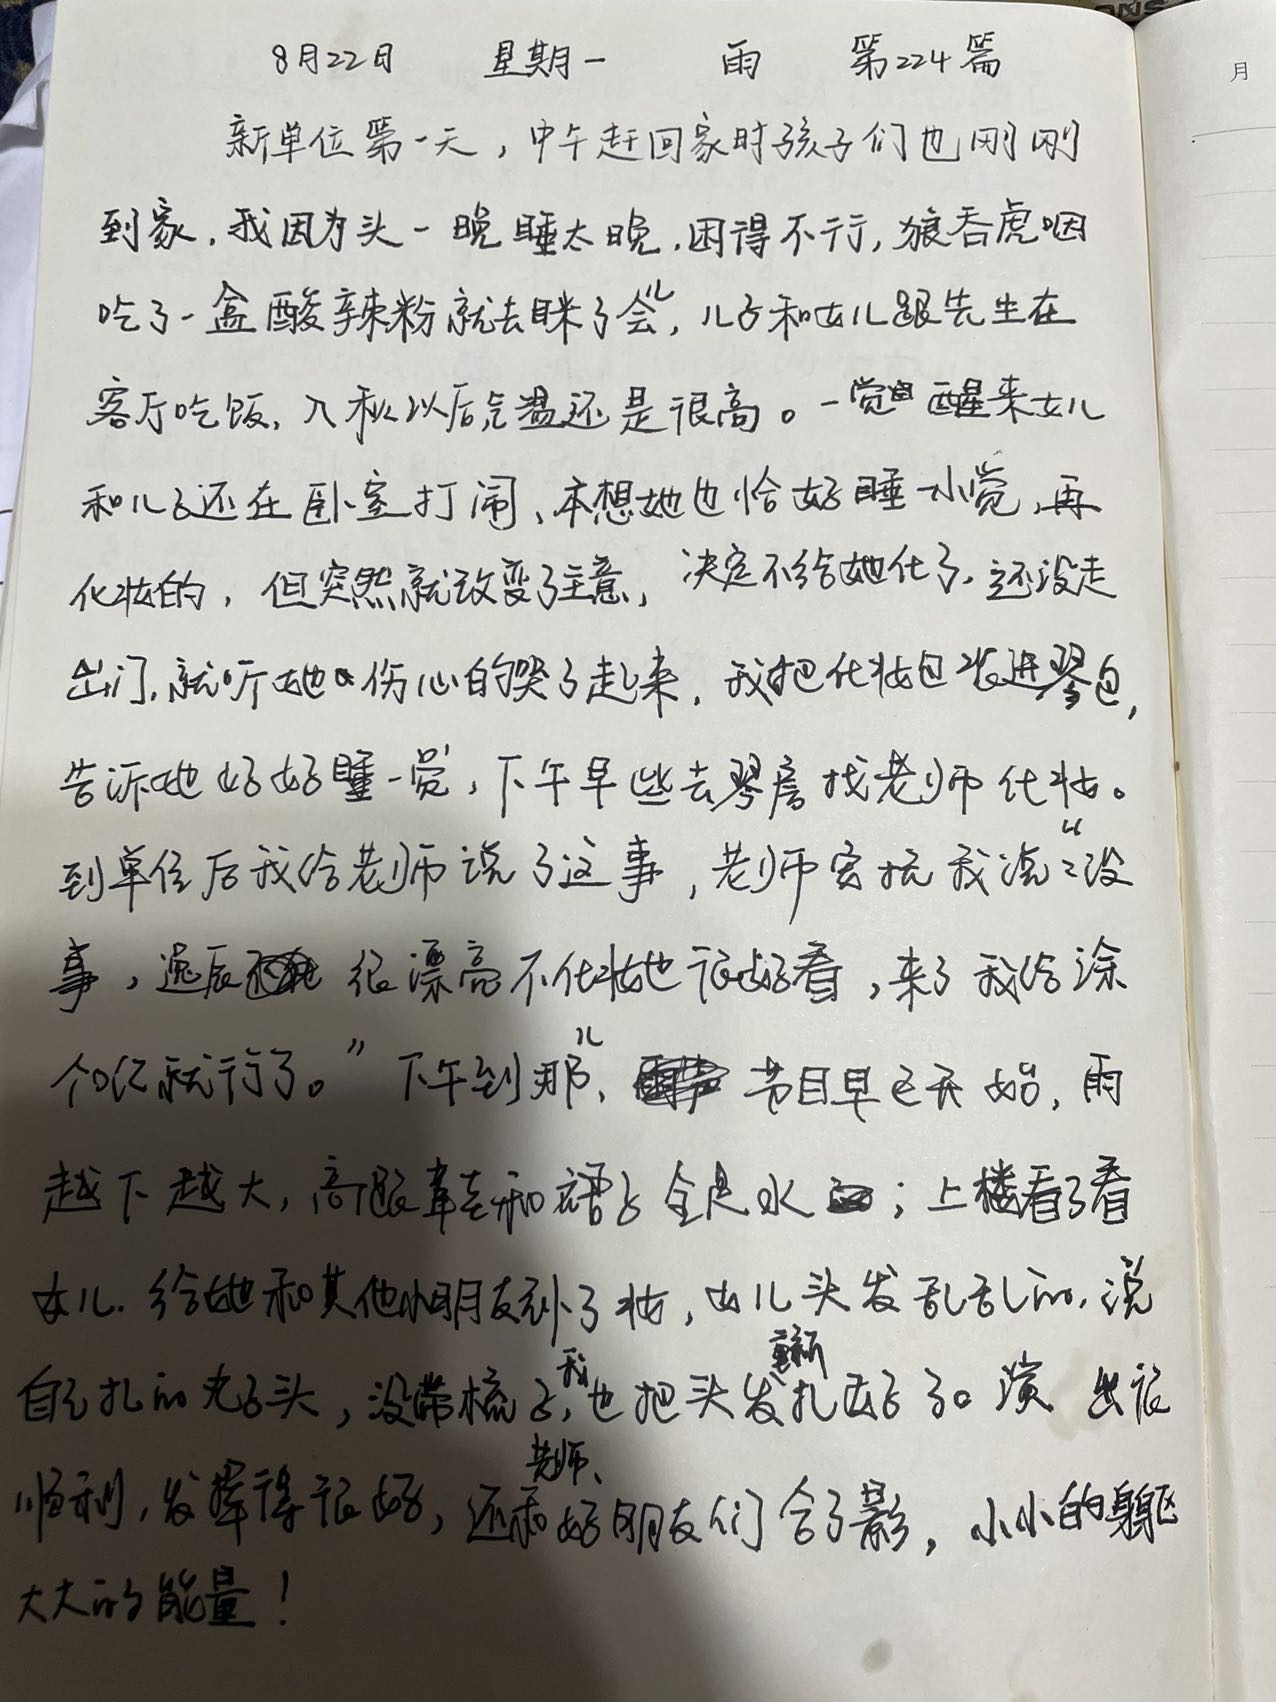 8月22日 星期一 雨 第224篇
新单位第一天，中午赶回家时孩子们也刚刚
到家，我因为头一晚睡太晚，困得不行，狼吞虎咽
吃了一盒酸辣粉就去眯了会儿，儿子和女儿跟先生在
客厅吃饭，入秋以后气温还是很高。一觉醒来女儿
和儿子还在卧室打闹、本想她也恰好睡一小觉，再
化妆的，但突然就改变了主意，决定不给她化了，还没走
出门，就听她伤心的哭了起来，我把化妆包装进琴包，
告诉她好好睡一觉，下午早些去琴房找老师化妆。
到单位后我给老师说了这事，老师宽抚我说：“没
事，逸辰很漂亮不化妆也很好看，来了我给涂
个口红就行了。”下午到那儿、节目早已开始，雨
越下越大，高跟鞋和裙子全是水；上楼看了看
女儿．给她和其他小朋友补了妆，女儿头发乱乱的，说
自己扎的丸子头，没带梳子，我也把头发重新扎好了。演出很
顺利，发挥得很好，还和老师、好朋友们合了影，小小的身躯
大大的能量！
月